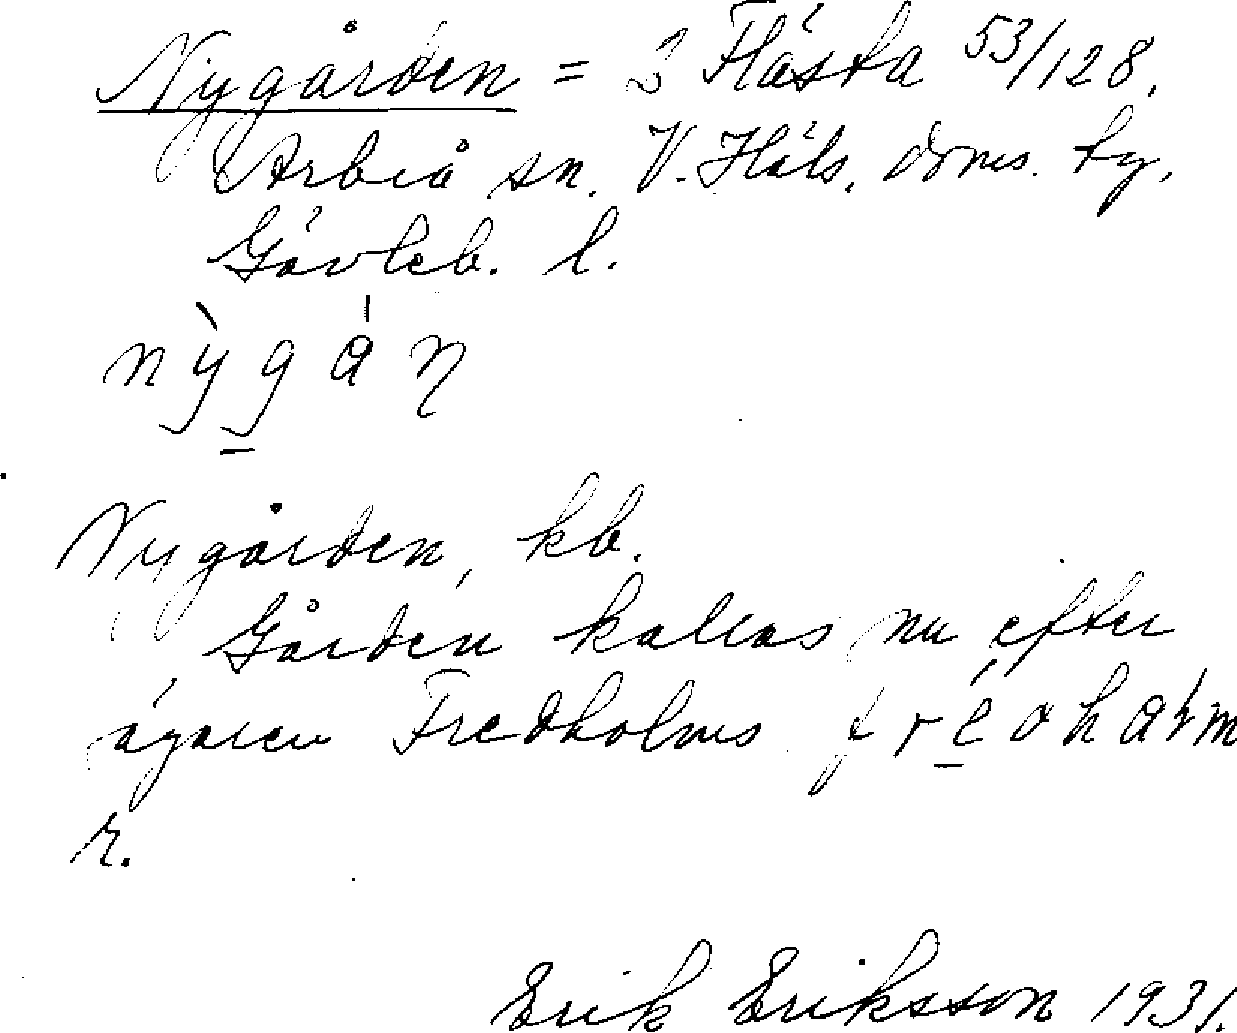 Nygården = 2 Flästa 53/128.
Arbrå sn. V. Häls. doms. hg.
Gävleb. l.
nỳgáṇ
Nygården, kb.
Gården kallas nu efter
ägaren Fredholms
r.
Erik Eriksson 1931.